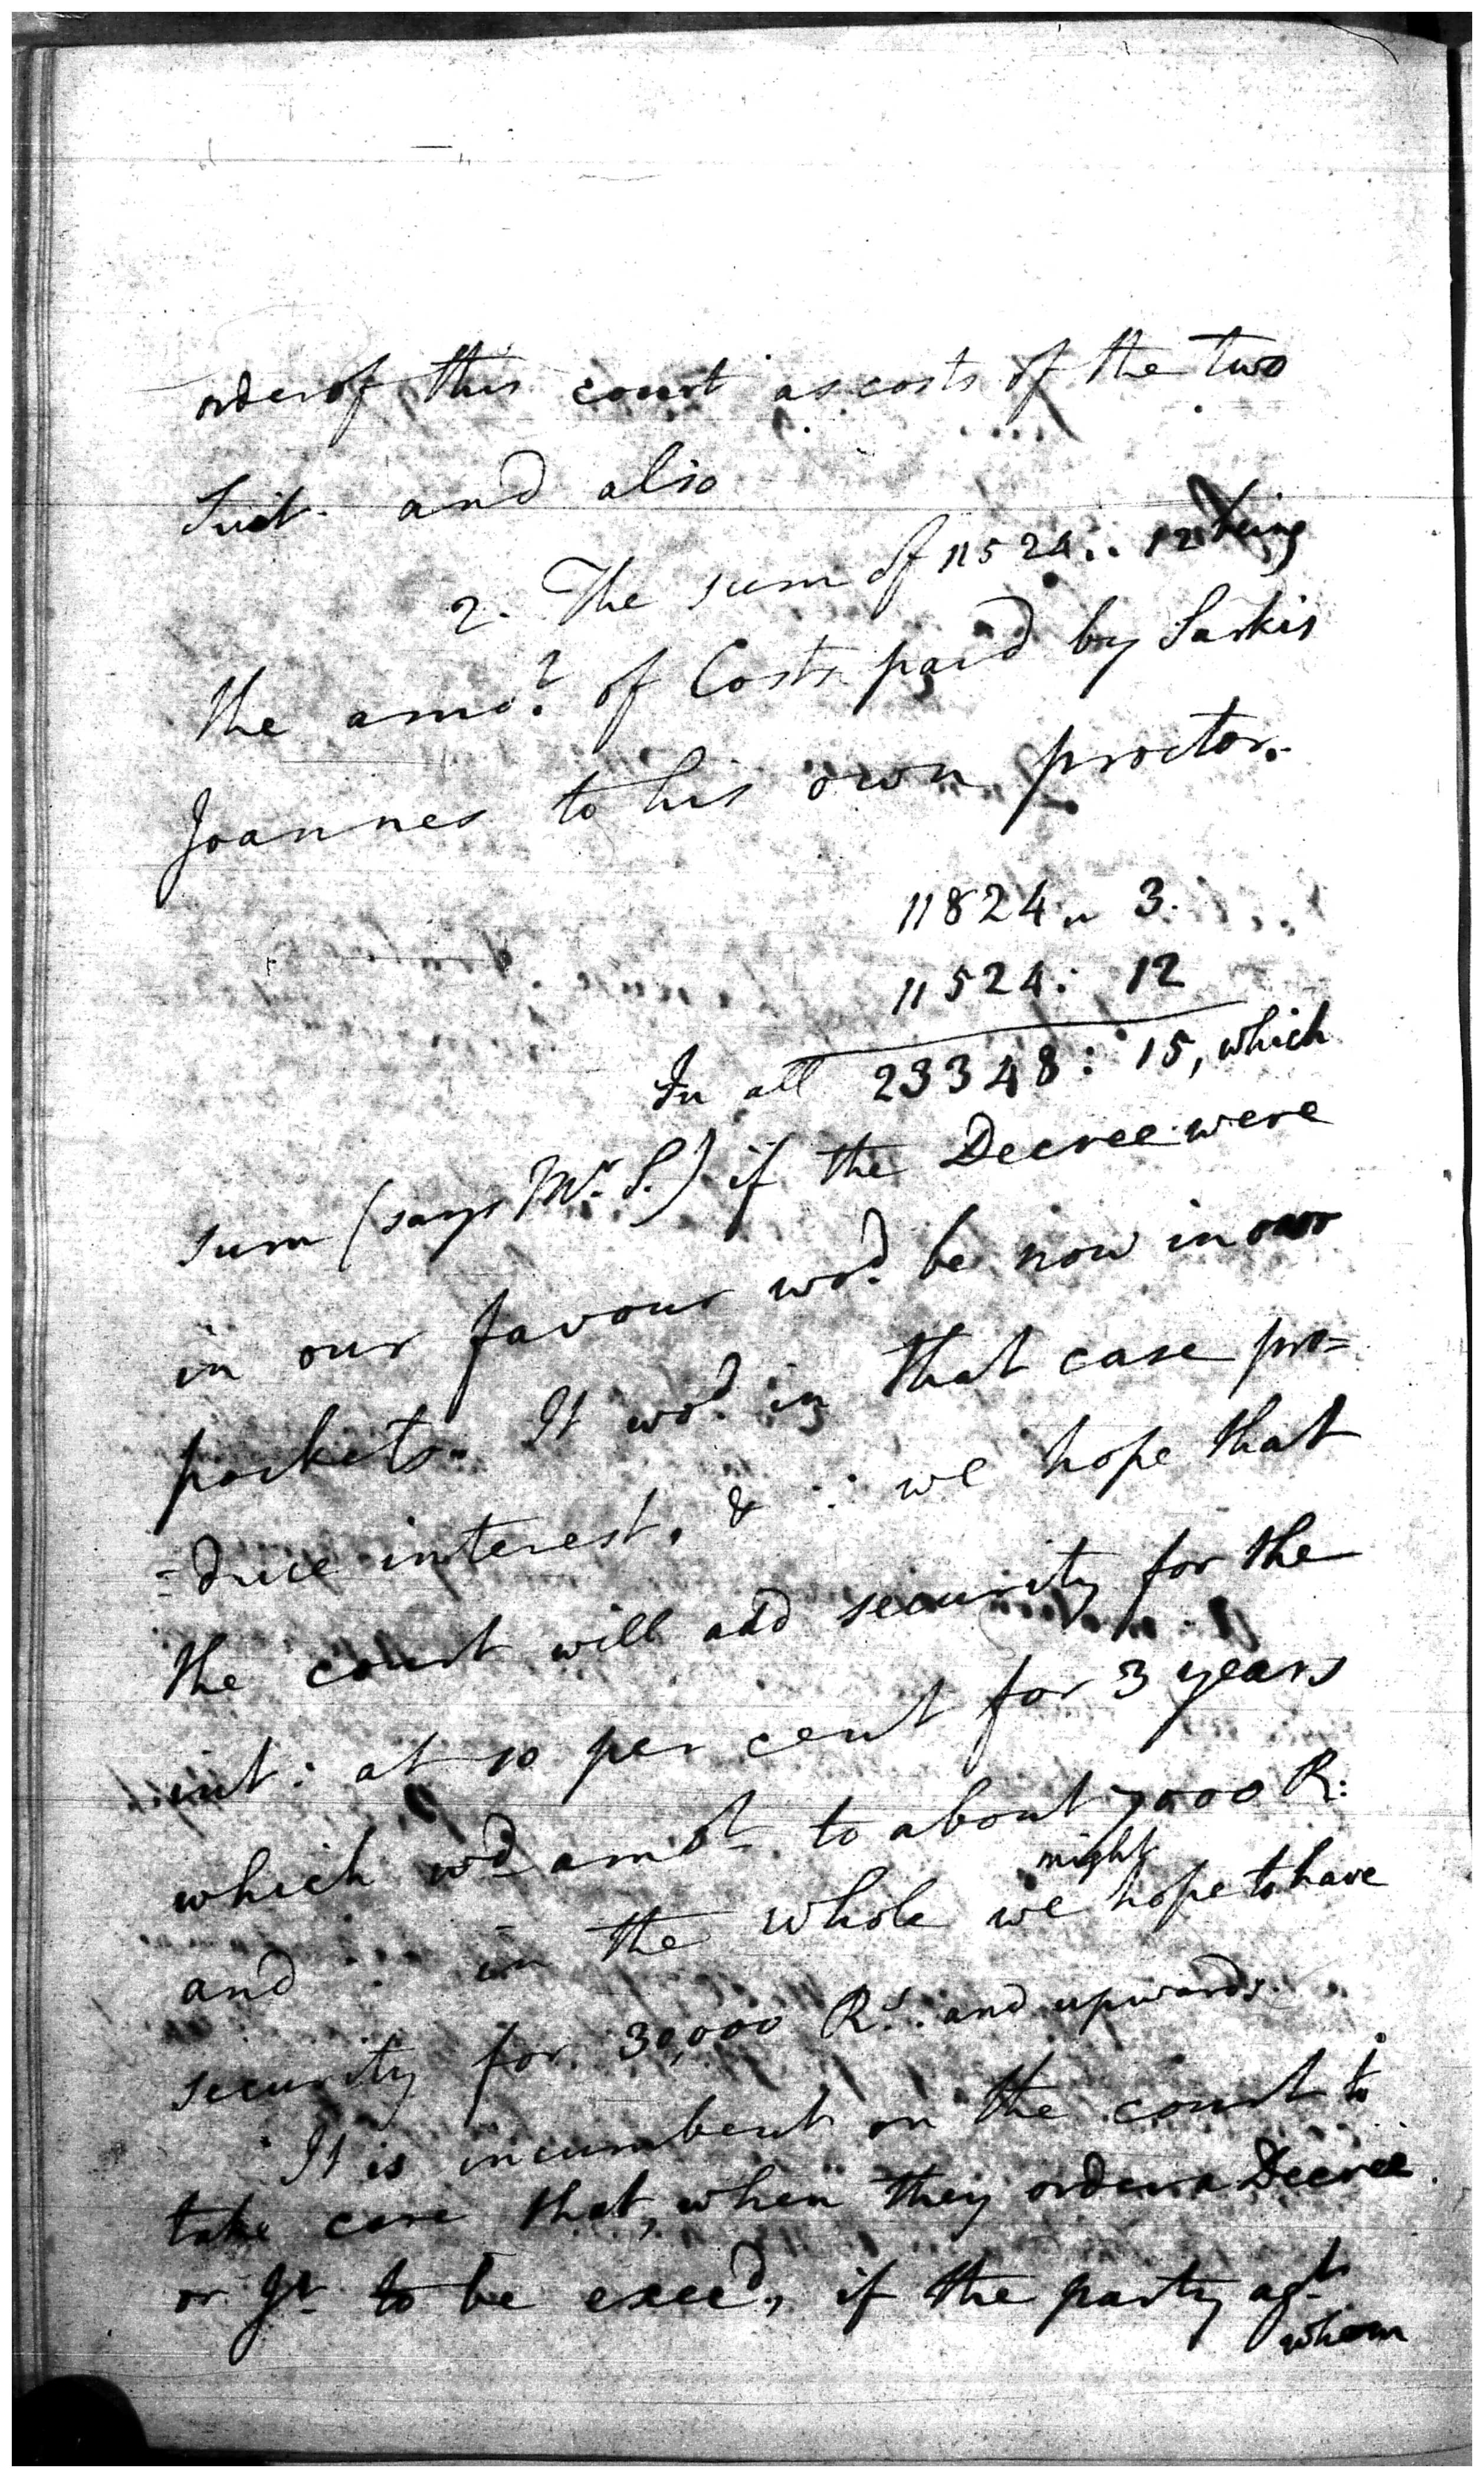 order of this court as costs of the two
Suit. and also
2. The sum of 11524.. 12 being
the amot. of Costs paid by Sarkis
Joannes to his own proctor.
11824 " 3.
11524: 12
In all 23348: 15, which
sum (says Mr. S.) if the Decree were
in our favour wod. be now in our
pockets. It wod. in that case pro=
=duce interest, & ∴ we hope that
the court will add security for the
int: at 10 per cent for 3 years
which wd amot to about 7000 R:
and ∴ in the whole we might hope to have
security for 30,000 Rs. and upwards.
It is incumbent on the court to
take care that, when they order a Decree
or Jt. to be exced, if the party agt
whom